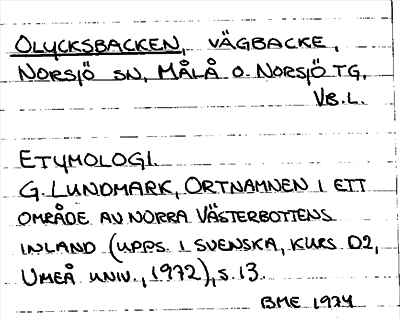 OLYCKSBACKEN, VÄGBACKE,
NORSJÖ SN, MÅLÅ O. NORSJÖ TG,
VB.L.
ETYMOLOGI.
G. LUNDMARK, ORTNAMNEN I ETT
OMRÅDE AV NORRA VÄSTERBOTTENS
INLAND (UPPS. I SVENSKA, KURS D2,
UMEÅ UNIV., 1972), S. 13.
BME 1974